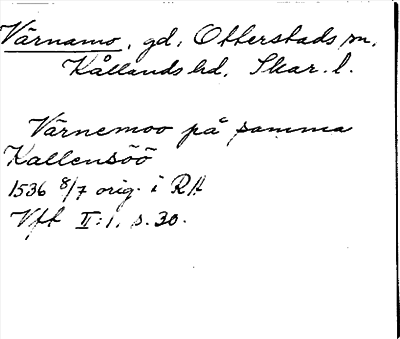 Värnamo, gd, Otterstads sn,
Kållands hd, Skar. l.
Värnemoo på samma
Kallensöö
1536 8/7 orig. i RA
Vft II:1, s. 30.